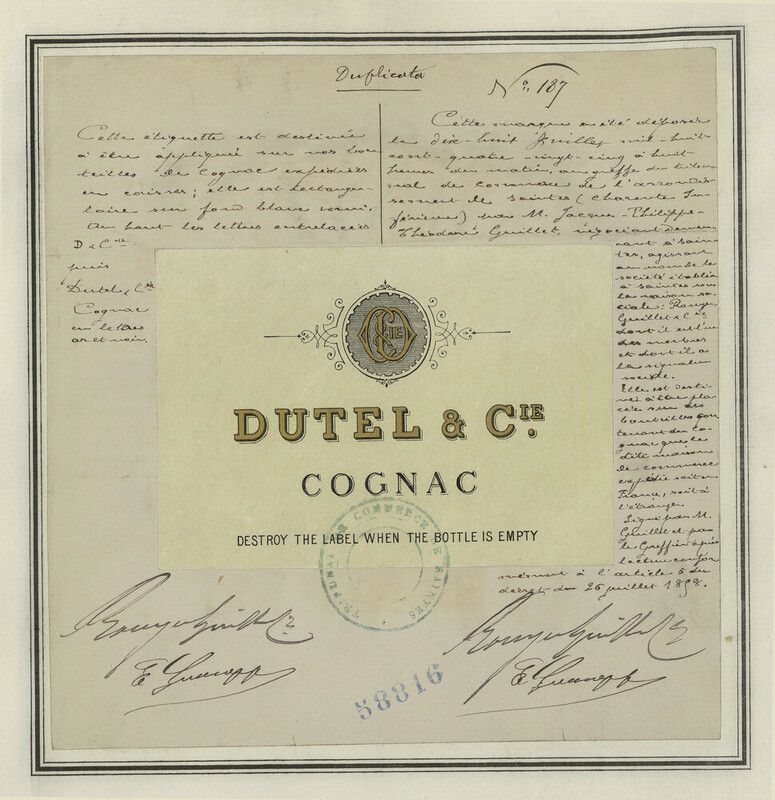 Duplicata
No. 187
Cette étiquette est destinée
à être appliquée sur nos bou-
teilles de Cognac expédiées
en caisses; elle est rectangu-
laire sur fond blanc verni.
En haut les lettres entrelacées
D & Cie
puis
Dutel & Cie
Cognac
en lettres
or et noir.
Cette marque a été déposée
le dix-huit Juillet mil-huit
cent-quatre-vingt-cinq à huit
heures du matin, au greffe du tribu-
nal de commerce de l'arrondis-
sement de Saintes (Charente In-
férieure) par M. Jacques-Philippe-
Théodore Guillet, négociant demeu-
rant à Sain-
tes, agissant
au nom de la
société établie
à Saintes sous
la raison so-
ciale: Rouyer
Guillet & Cie
dont il est l'un
des membres
et dont il a
la signature
sociale.
Elle est desti-
née à être pla-
cée sur des
bouteilles con-
tenant du Co-
gnac que la
dite maison
de commerce
expédie soit en
France, soit à
l'étranger.
Signé par M.
Guillet et par
le Greffier après
lecture confor-
mément à l'article 5 du
décret du 26 juillet 1858.
CIE
DUTEL & CIE.
COGNAC
DESTROY THE LABEL WHEN THE BOTTLE IS EMPTY
TRIBUNAL DE COMMERCE DE SAINTES
Rouyer Guillet & Cie
Rouyer Guillet & Cie
58816